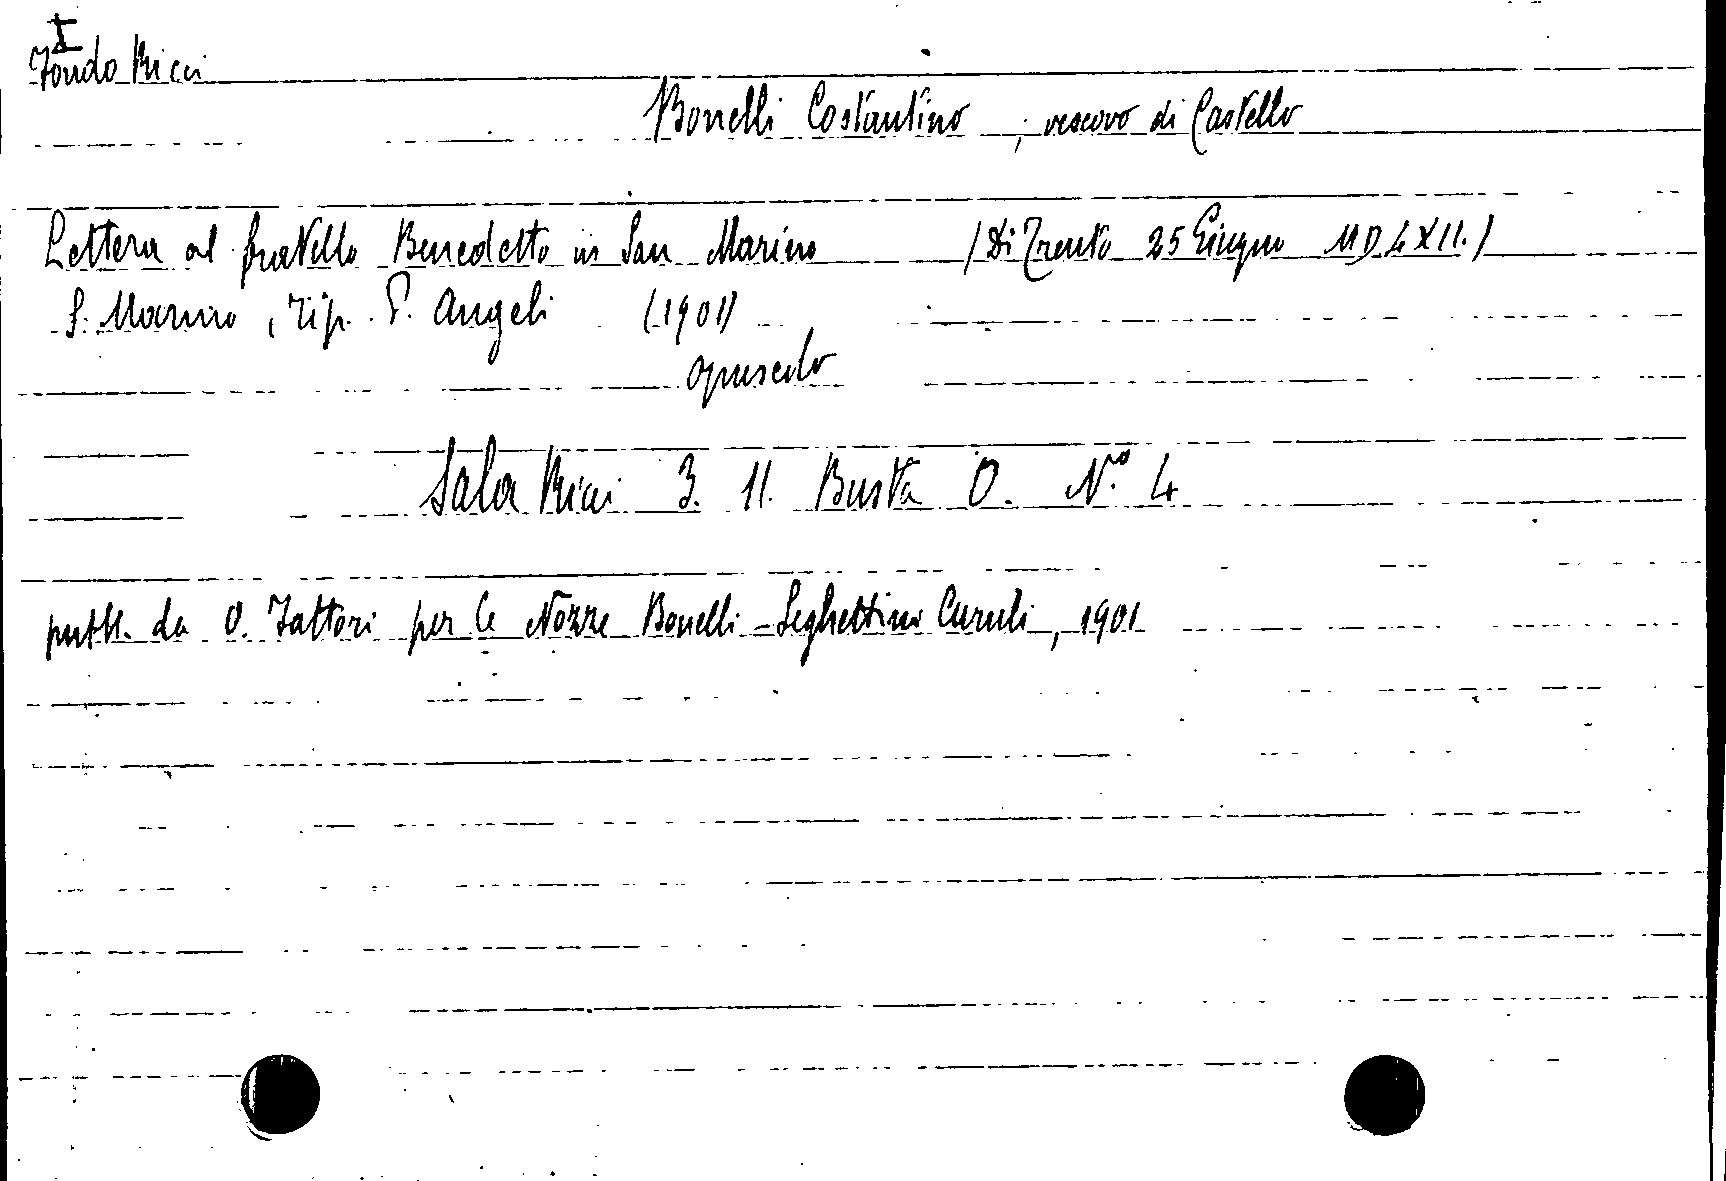 I
Fondo Ricci
Bonelli Costantino, vescovo di Castello
Lettera al fratello Benedetto in San Marino (Di Trento 25 Giugno MDLXII.)
S. Marino, Tip. P. Angeli (1901)
opuscolo
Sala Ricci 3. 11. Busta O. N.° 4
pubbl. da O. Fattori per le Nozze Bonelli-Seghettini Curuli, 1901